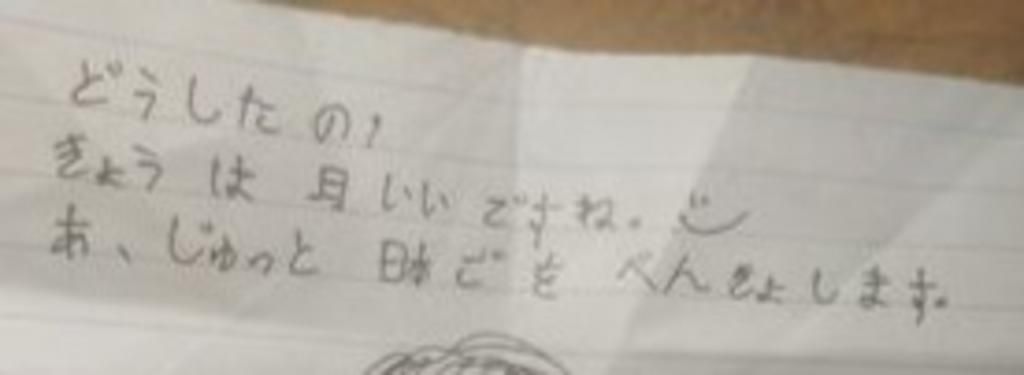 どうしたの?
きょうは 日 いいですね。
あ、じゅっと 日本ごを べんきょします。